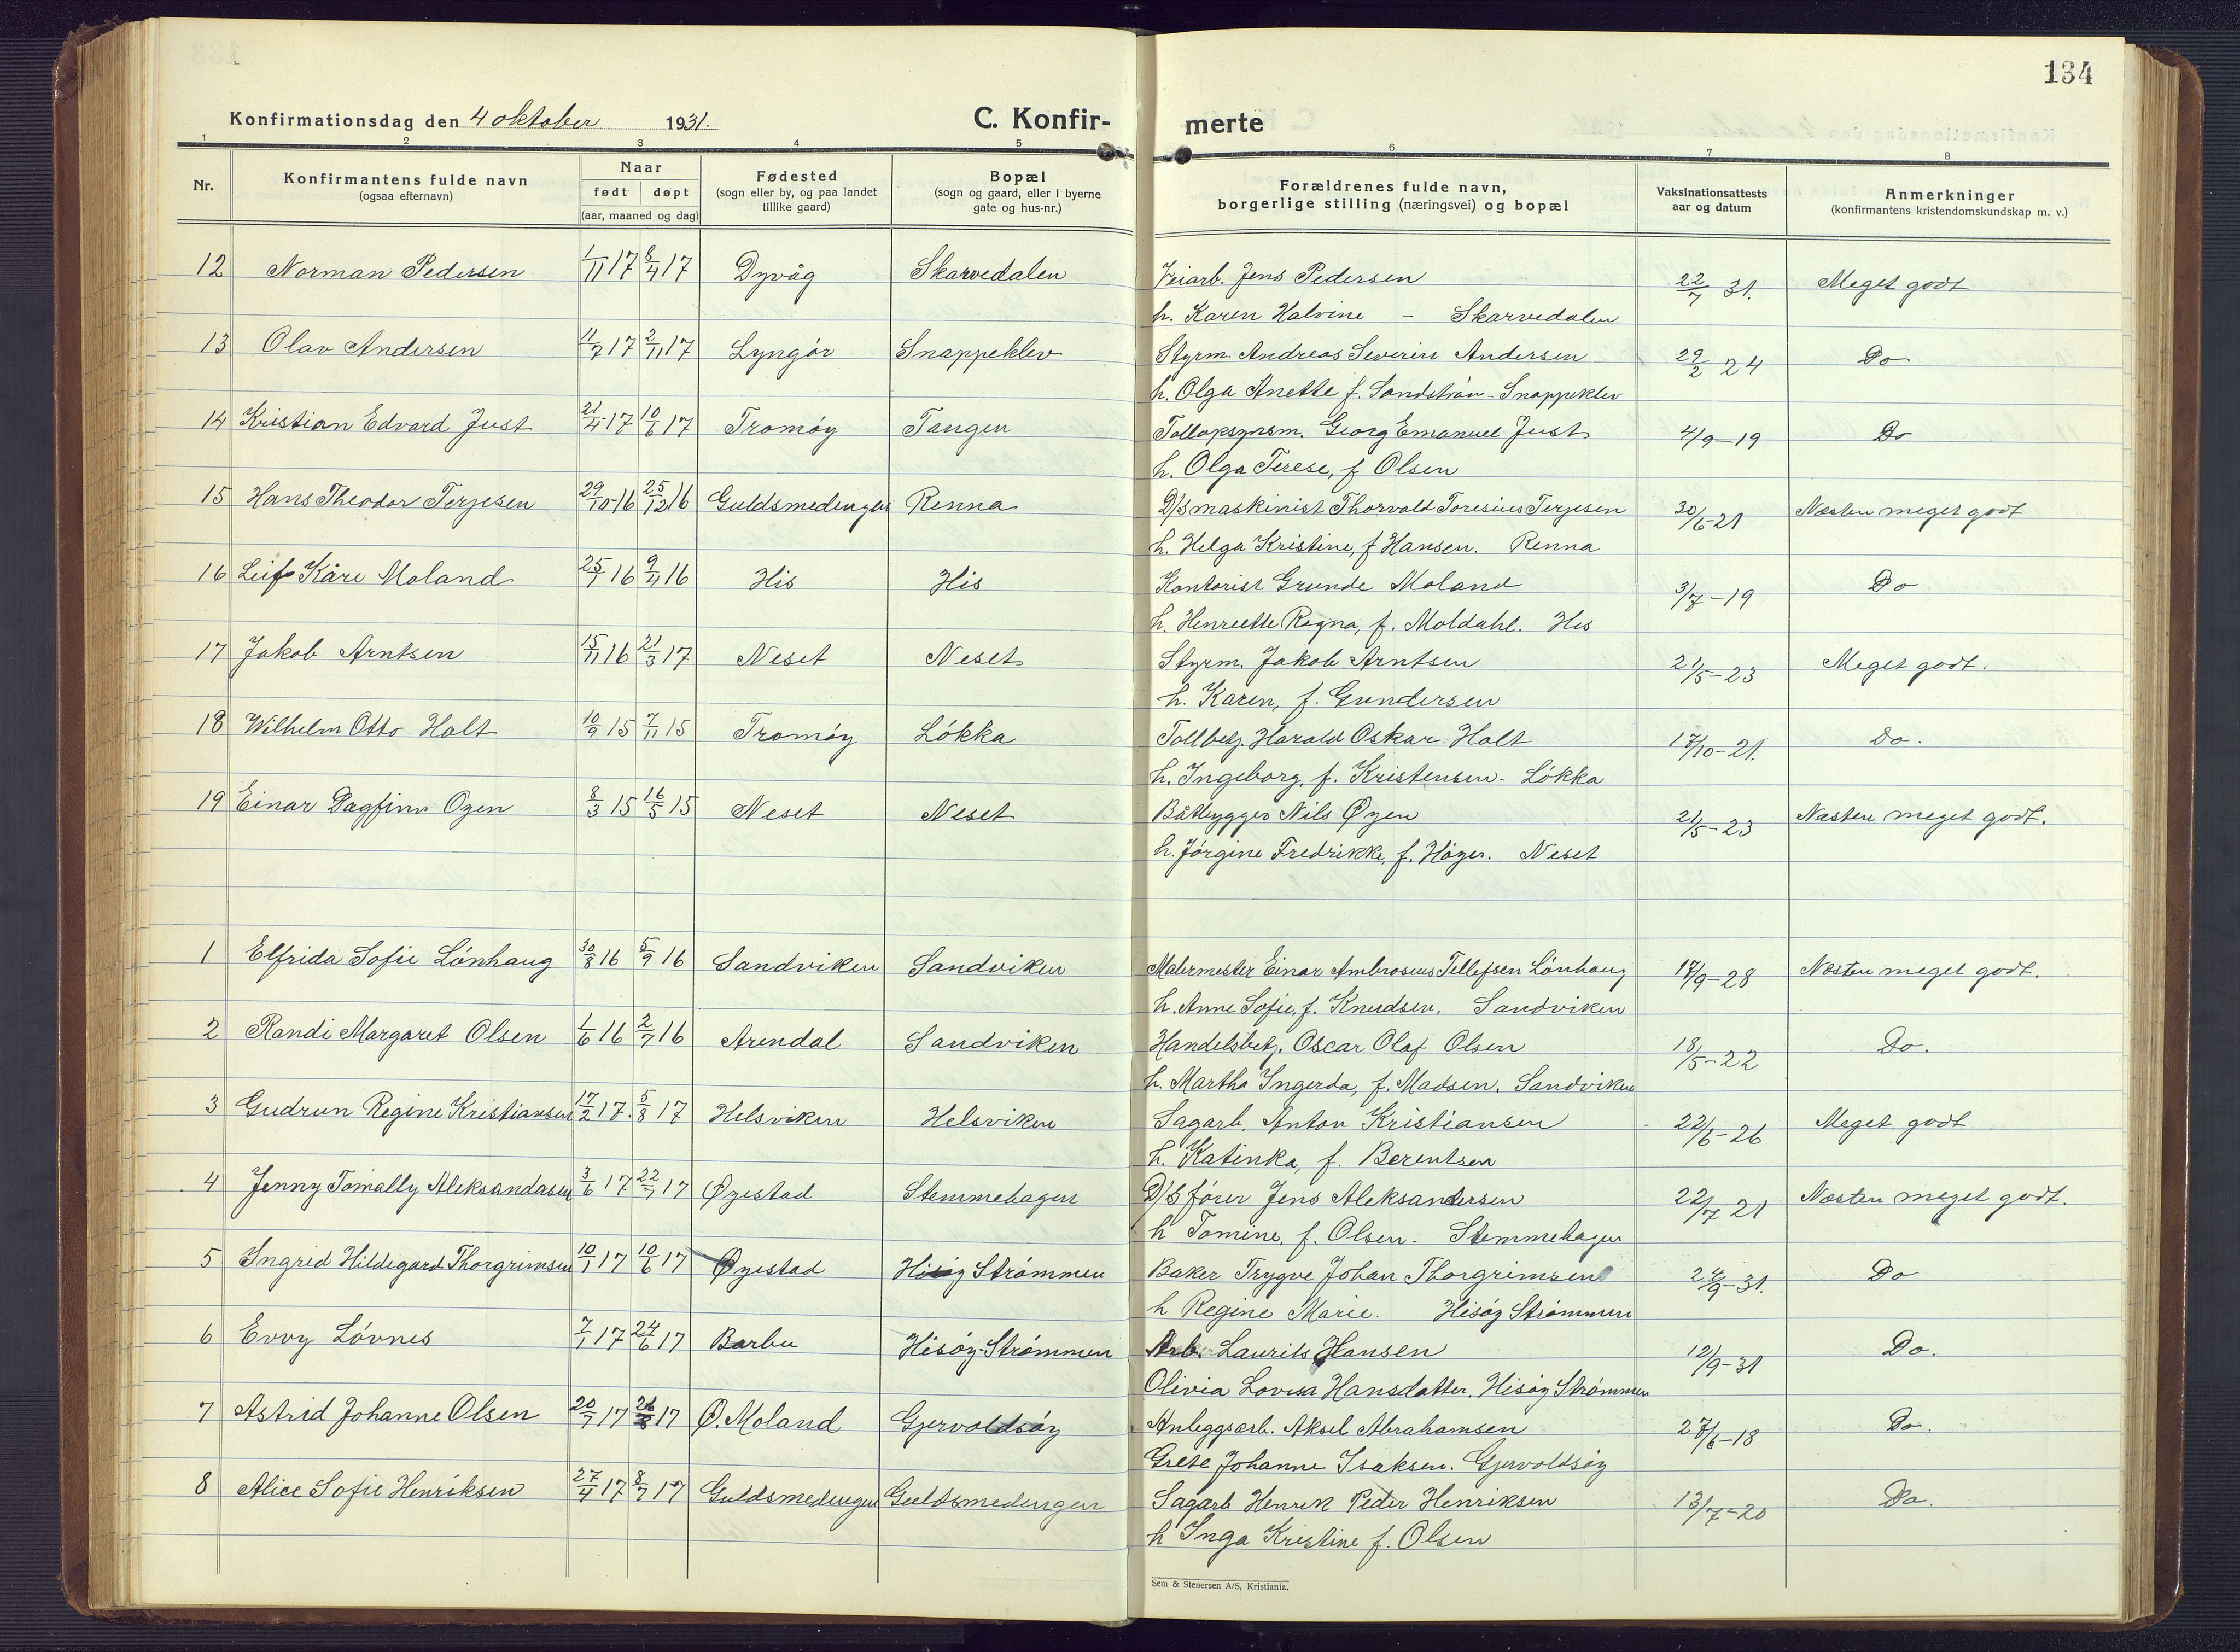 134
Konfirmationsdag den 4 oktober 1931.
C. Konfir-
merte
1 2 3 4 5 6 7 8
Nr.
Konfirmantens fulde navn
(ogsaa efternavn)
Naar
født døpt
(aar, maaned og dag)
Fødested
(sogn eller by, og paa landet
tillike gaard)
Bopæl
(sogn og gaard, eller i byerne
gate og hus-nr.)
Forældrenes fulde navn,
borgerlige stilling (næringsvei) og bopæl
Vaksinationsattests
aar og datum
Anmerkninger
(konfirmantens kristendomskundskap m. v.)
12 Norman Pedersen 1/11 17 8/4 17 Dyvåg Skarvedalen Veiarb. Jens Pedersen 22/7 31. Meget godt
h. Karen Halvine – Skarvedalen
13 Olav Andersen 11/7 17 2/11 17 Lyngør Snappeklev Styrm. Andreas Severin Andersen 29/2 24 Do
h. Olga Anette f. Sandström - Snappeklev
14 Kristian Edvard Just 21/4 17 10/6 17 Tromöy Tangen Tollopsynsm. Georg Emanuel Just 4/9-19 Do
h. Olga Terese, f. Olsen
15 Hans Theodor Terjesen 29/10-16 25/12 16 Guldsmedengen Renna D/S maskinist Thorvald Toresius Terjesen 30/6-21 Næsten meget godt
h. Helga Kristine, f Hansen. Renna
16 Leif Kåre Moland 25/1 16 9/4 16 His His Kontorist Grunde Moland 3/7-19 Do
h. Henriette Ragna, f. Moldahl. His
17 Jakob Arntsen 15/11 16 21/3 17 Neset Neset Styrm. Jakob Arntsen 21/5-23 Meget godt.
h. Karen, f. Gundersen
18 Wilhelm Otto Holt 10/9 15 7/11 15 Tromöy Lökka Tollbetj. Harald Oskar Holt 17/10-21. Do.
h. Ingeborg, f. Kristensen - Lökka
19 Einar Dagfinn Ozen 8/3 15 16/5 15 Neset Neset Båtbygger Nils Øzen 21/5-23 Næsten meget godt.
h. Jörgine Fredrikke, f. Höyer. Neset
1 Elfrida Sofie Lönhaug 30/8 16 5/9 16 Sandviken Sandviken Malermester Einar Ambrosius Tellefsen Lönhaug 17/9-28 Næsten meget godt.
h. Anne Sofie, f. Knudsen. Sandviken
2 Randi Margaret Olsen 1/6 16 2/7 16 Arendal Sandviken Handelsbetj. Oscar Olaf Olsen 18/5-22 Do.
h. Martha Ingerda, f. Madsen. Sandviken
3 Gudrun Regine Kristiansen 17/2 17. 5/8 17 Helsviken Helsviken Sagarb. Anton Kristiansen 22/6-26 Meget godt
h. Katinka, f. Berentsen
4 Jenny Tomally Aleksandasen 3/6 17 22/7 17 Øyestad Stemmehagen D/S förer Jens Aleksandersen 22/7 21 Næsten meget godt.
h Tomine, f. Olsen - Stemmehagen
5 Ingrid Hildegard Thorgrimsen 10/1 17 10/6 17 Øyestad Hisöy Strömmen Baker Trygve Johan Thorgrimsen 24/9-31. Do
h Regine Marie. Hisöy Strömmen
6 Evvy Lövnes 7/1 17 24/6 17 Barbu Hisöy-Strömmen Arb. Laurits Hansen 12/9-31 Do.
Olivia Lovisa Hansdatter. Hisöy Strömmen
7 Astrid Johanne Olsen 20/7 17 26/8 17 Ø. Moland Gjervoldsöy Anleggsarb. Aksel Abrahamsen 27/6-18 Do.
Grete Johanne Isaksen. Gjervoldsöy
8 Alice Sofie Henriksen 27/4 17 8/7 17 Guldsmedengen Guldsmedengen Sagarb Henrik Peder Henriksen 13/7-20 Do.
h Inga Kristine f. Olsen
Sem & Stenersen A/S, Kristiania.